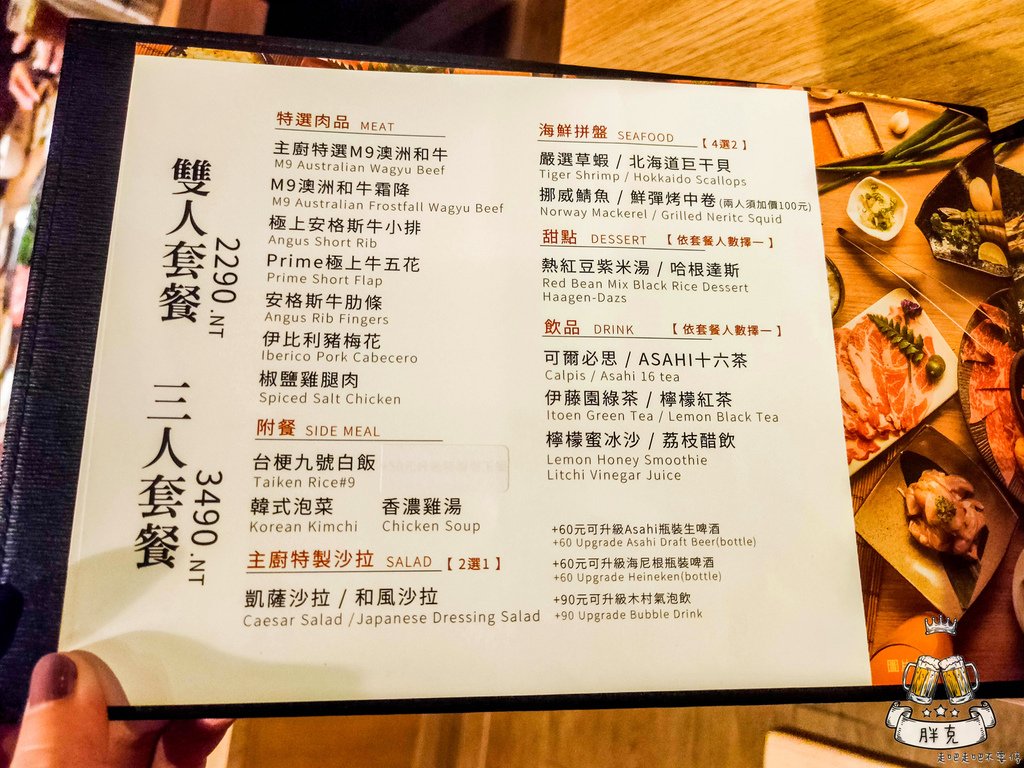 雙人套餐
2290.NT
三人套餐
3490.NT
特選肉品 MEAT
主廚特選M9澳洲和牛
M9 Australian Wagyu Beef
M9澳洲和牛霜降
M9 Australian Frostfall Wagyu Beef
極上安格斯牛小排
Angus Short Rib
Prime極上牛五花
Prime Short Flap
安格斯牛肋條
Angus Rib Fingers
伊比利豬梅花
Iberico Pork Cabecero
椒鹽雞腿肉
Spiced Salt Chicken
附餐 SIDE MEAL
台梗九號白飯
Taiken Rice#9
韓式泡菜 香濃雞湯
Korean Kimchi Chicken Soup
主廚特製沙拉 SALAD 【2選1】
凱薩沙拉 / 和風沙拉
Caesar Salad /Japanese Dressing Salad
海鮮拼盤 SEAFOOD 【4選2】
嚴選草蝦 / 北海道巨干貝
Tiger Shrimp / Hokkaido Scallops
挪威鯖魚 / 鮮彈烤中卷(兩人須加價100元)
Norway Mackerel / Grilled Neritc Squid
甜點 DESSERT 【依套餐人數擇一】
熱紅豆紫米湯 / 哈根達斯
Red Bean Mix Black Rice Dessert
Haagen-Dazs
飲品 DRINK 【依套餐人數擇一】
可爾必思 / ASAHI十六茶
Calpis / Asahi 16 tea
伊藤園綠茶 / 檸檬紅茶
Itoen Green Tea / Lemon Black Tea
檸檬蜜冰沙 / 荔枝醋飲
Lemon Honey Smoothie
Litchi Vinegar Juice
+60元可升級Asahi瓶裝生啤酒
+60 Upgrade Asahi Draft Beer(bottle)
+60元可升級海尼根瓶裝啤酒
+60 Upgrade Heineken(bottle)
+90元可升級木村氣泡飲
+90 Upgrade Bubble Drink
胖克